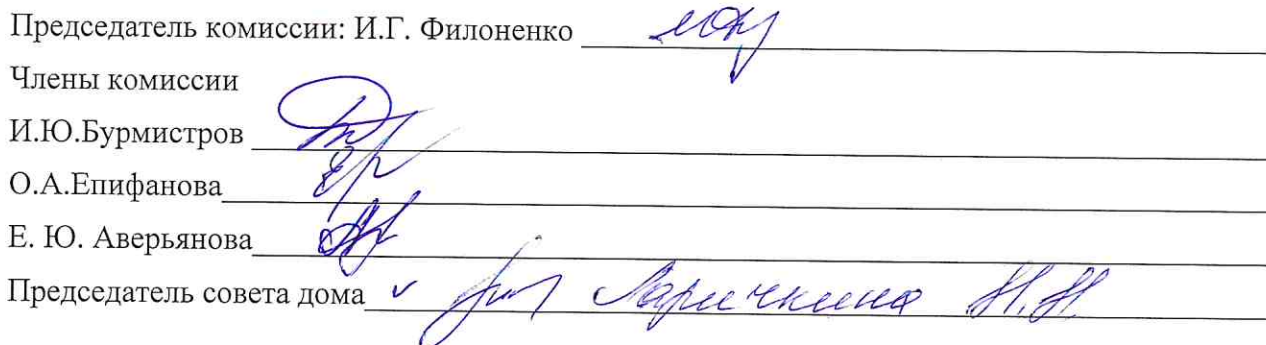 Председатель комиссии: И.Г. Филоненко
Члены комиссии
И.Ю.Бурмистров
О.А.Епифанова
Е. Ю. Аверьянова
Председатель совета дома Ларичкина Н.Н.